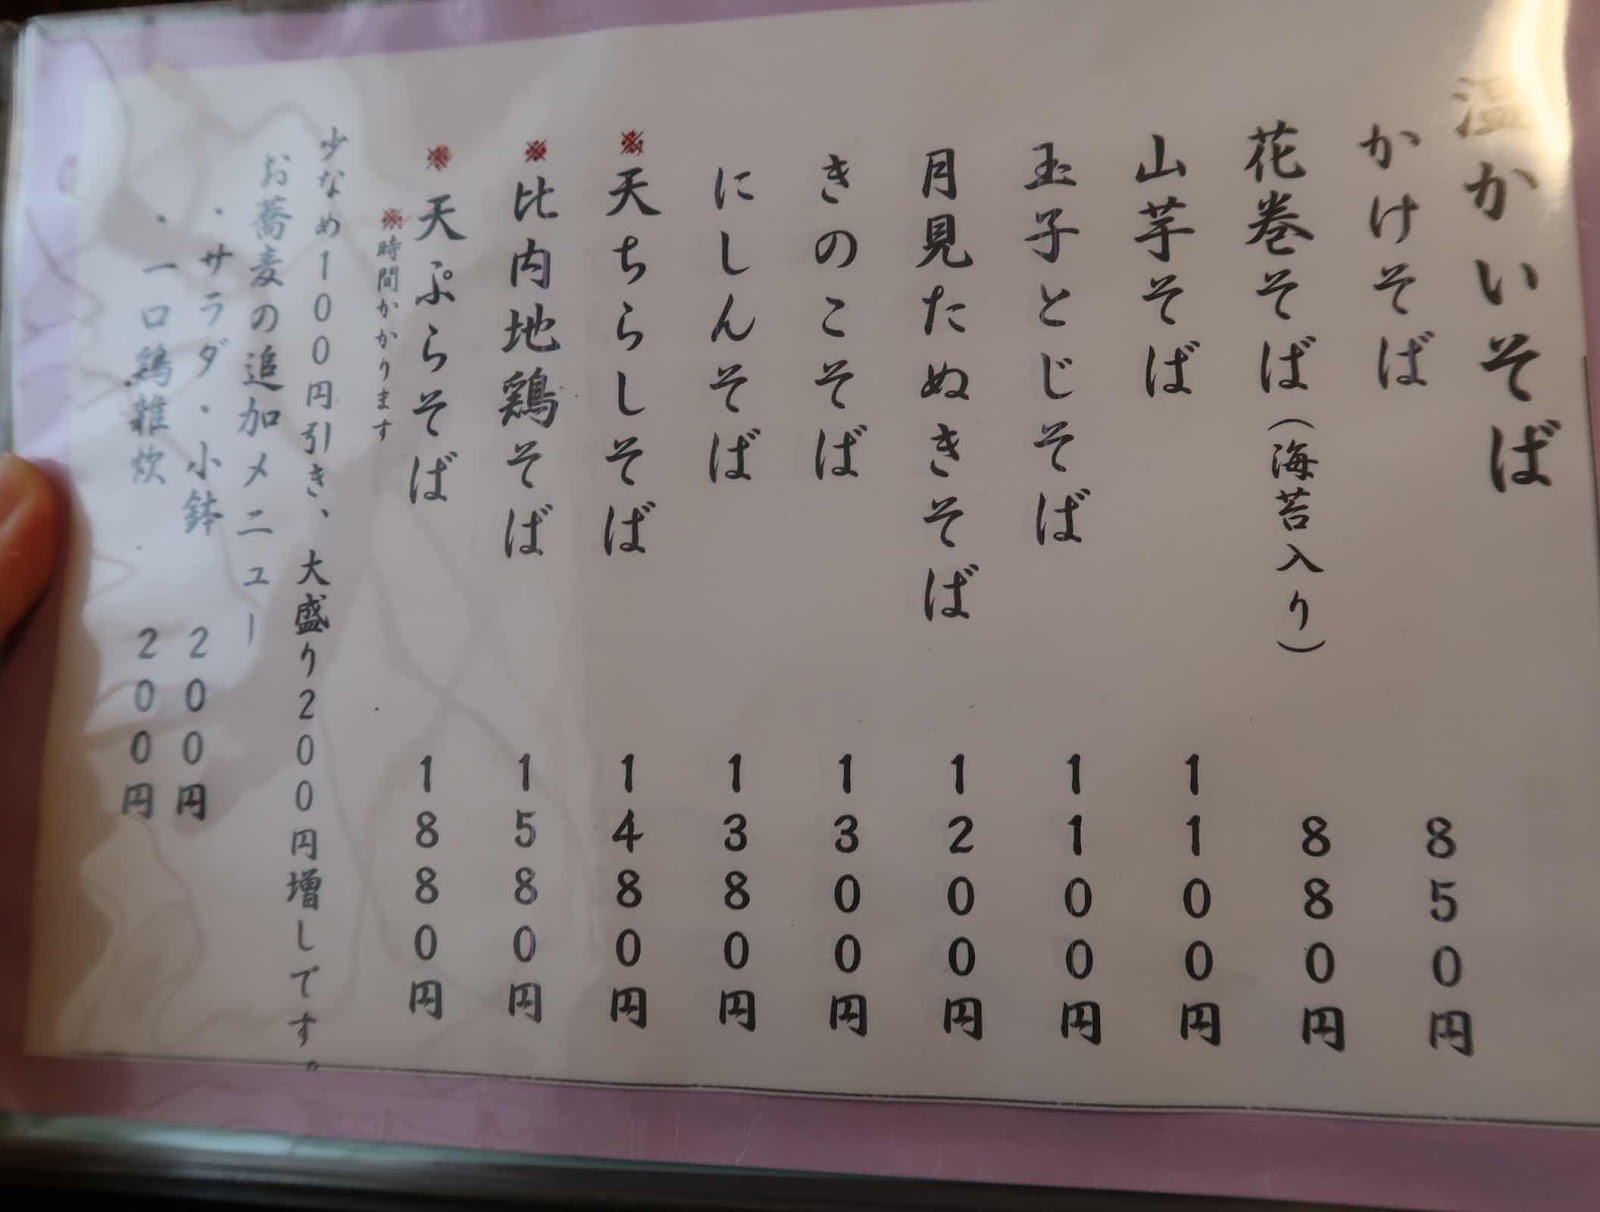 温かいそば
かけそば 850円
花巻そば(海苔入り) 880円
山芋そば 1100円
玉子とじそば 1100円
月見たぬきそば 1200円
きのこそば 1300円
にしんそば 1380円
※天ちらしそば 1480円
※比内地鶏そば 1580円
※天ぷらそば 1880円
※時間かかります
少なめ100円引き、大盛り200円増しです。
お蕎麦の追加メニュー
・サラダ・小鉢 200円
・一口鶏雑炊 200円